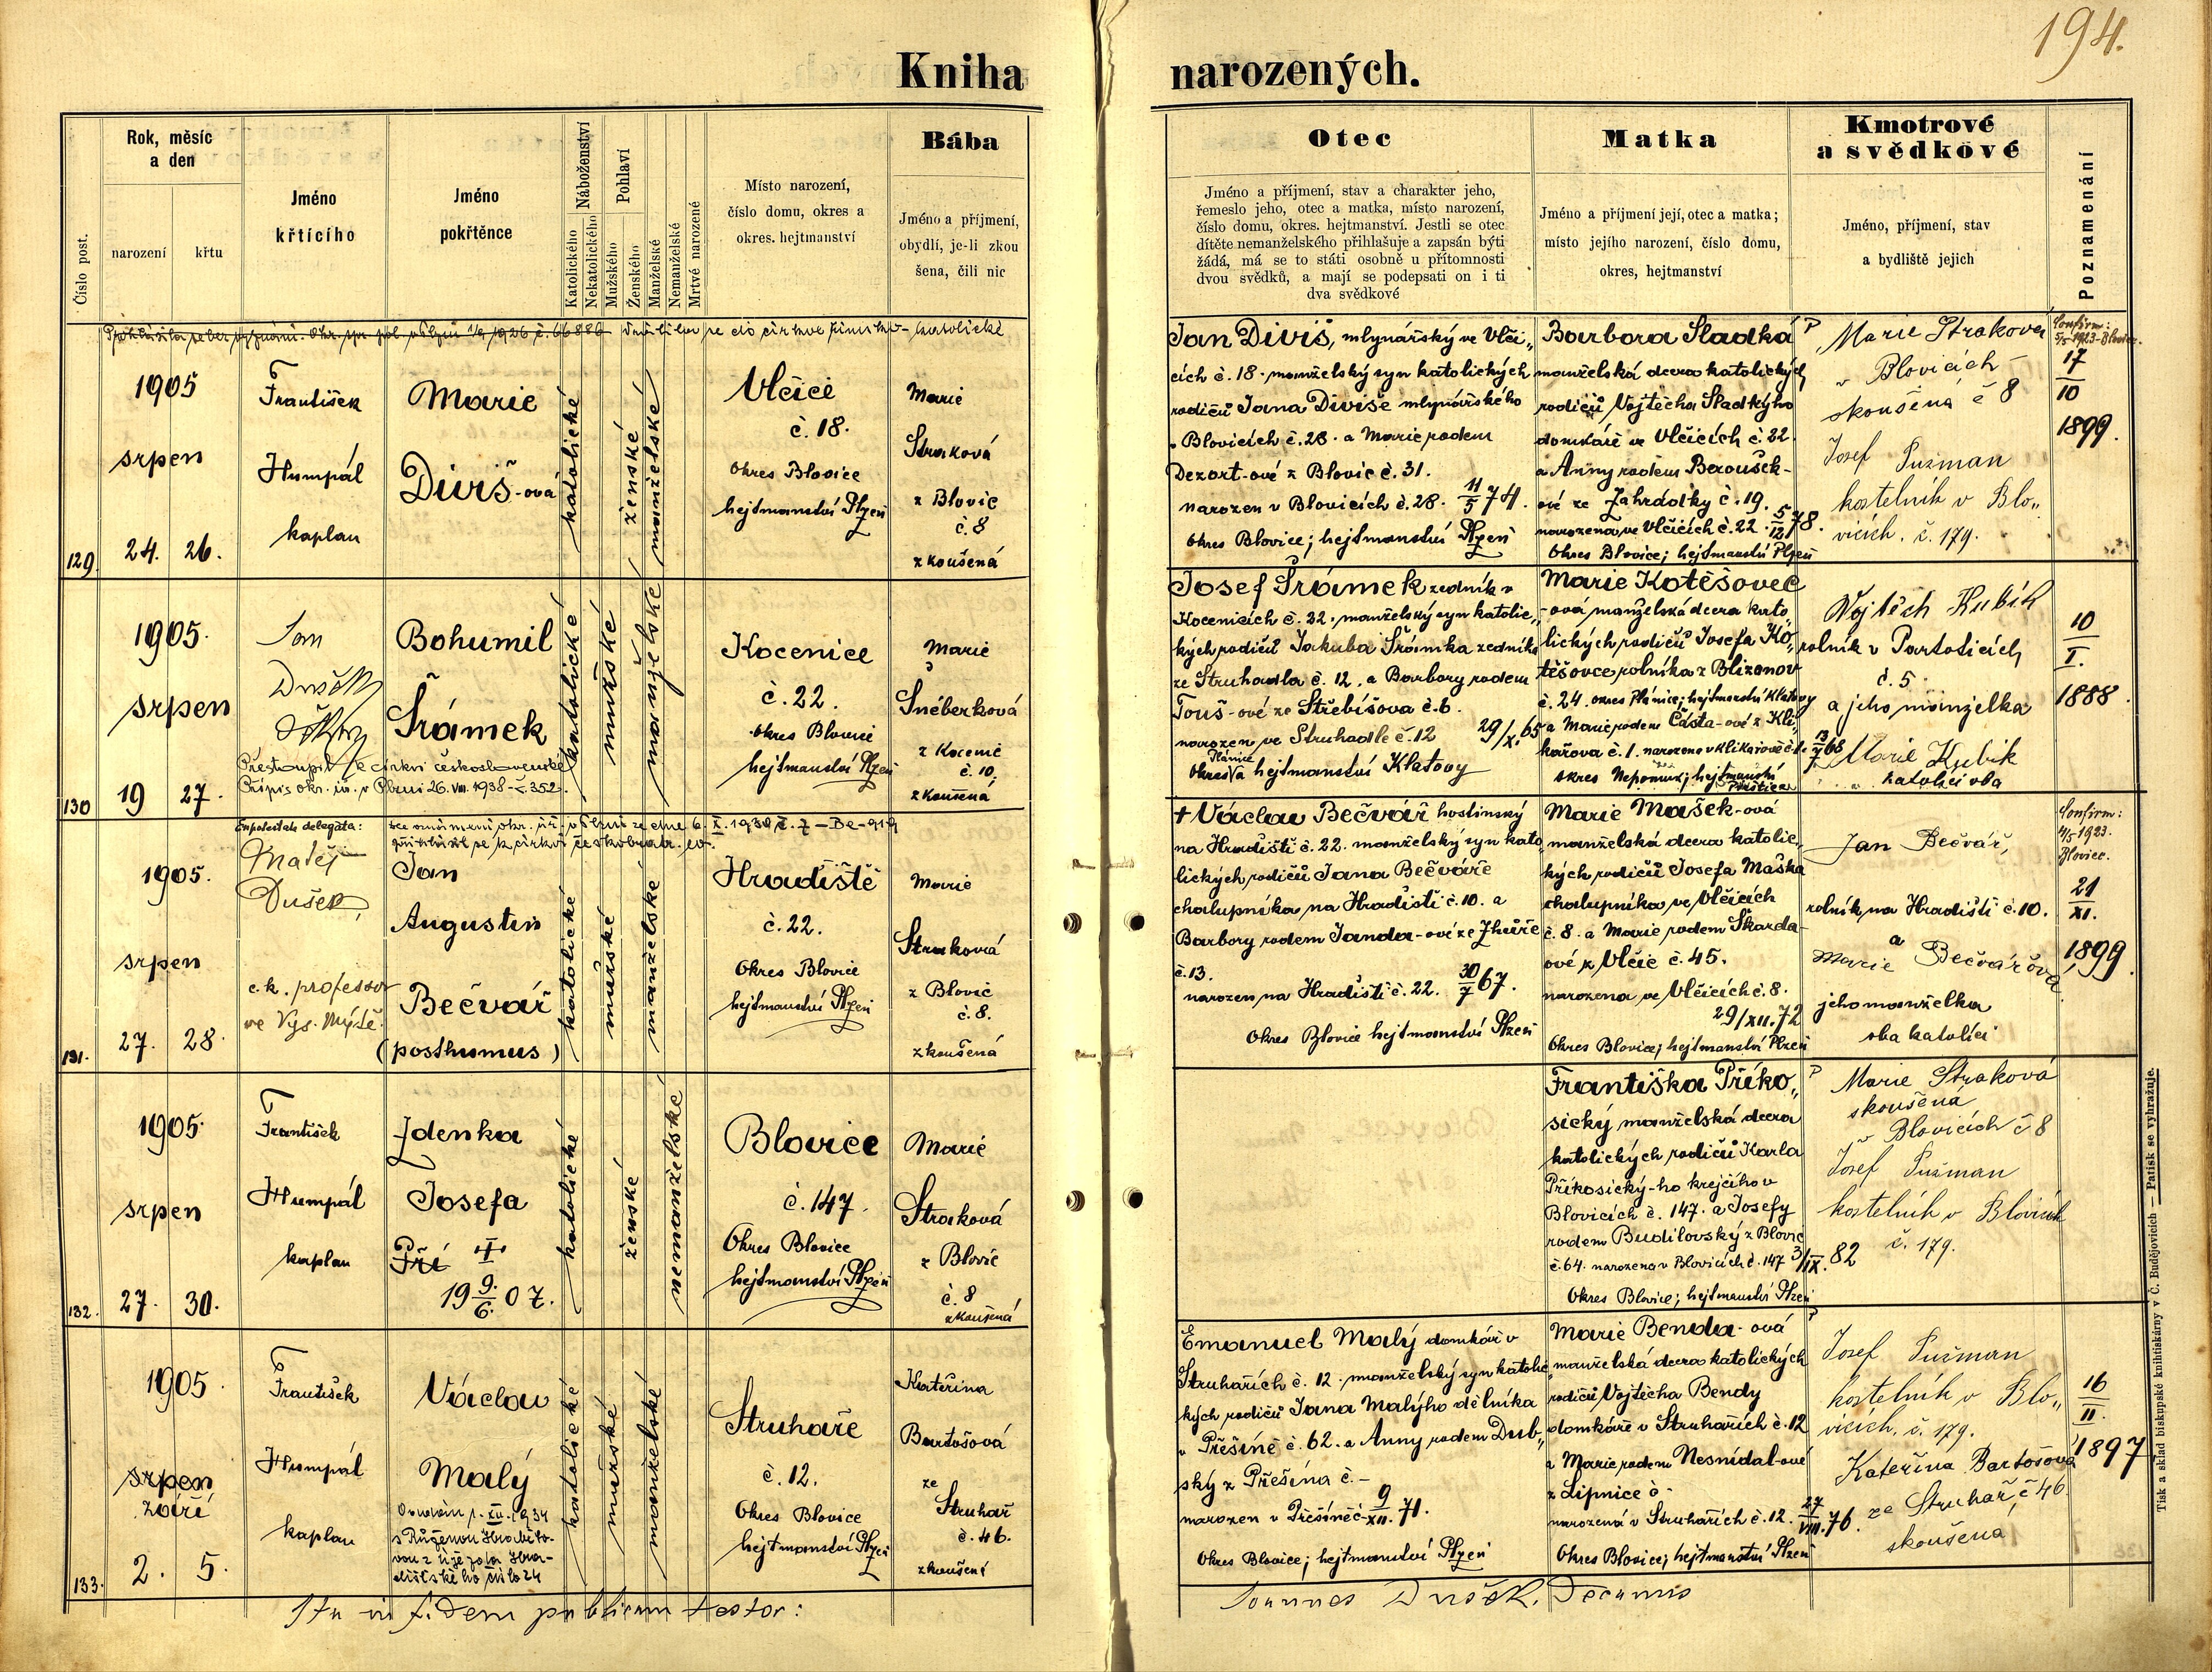 194.
Kniha narozených.
Číslo post.
Rok, měsíc
a den
narození
křtu
Jméno
křtícího
Jméno
pokřtěnce
Náboženství
Katolického
Nekatolického
Pohlaví
Mužského
Ženského
Manželské
Nemanželské
Mrtvé narozené
Místo narození,
číslo domu, okres a
okres. hejtmanství
Bába
Jméno a příjmení,
obydlí, je-li zkou
šena, čili nic
Otec
Jméno a příjmení, stav a charakter jeho,
řemeslo jeho, otec a matka, místo narození,
číslo domu, okres. hejtmanství. Jestli se otec
dítěte nemanželského přihlašuje a zapsán býti
žádá, má se to státi osobně u přítomnosti
dvou svědků, a mají se podepsati on i ti
dva svědkové
Matka
Jméno a příjmení její, otec a matka;
místo jejího narození, číslo domu,
okres, hejtmanství
Kmotrové
a svědkové
Jméno, příjmení, stav
a bydliště jejich
Poznamenání
129
1905
srpen
24. 26.
František
Humpál
kaplan
Marie
Diviš-ová
katolické
ženské
manželské
Vlčice
č. 18.
Okres Blovice
hejtmanství Plzeň
Marie
Straková
z Blovic
č. 8
zkoušená
Jan Diviš, mlynářský ve Vlči„
cích č. 18. manželský syn katolických
rodičů Jana Diviše mlynářského
v Blovicích č. 28. a Marie rodem
Dezort-ové z Blovic č. 31.
narozen v Blovicích č. 28. 11/5 74.
Okres Blovice; hejtmanství Plzeň
Barbora Sladká
manželská dcera katolických
rodičů Vojtěcha Sladkýho
domkáře ve Vlčicích č. 22
a Anny rodem Beroušek-
ové ze Zahrádky č. 19.
narozená ve Vlčicích č. 22. 5/12 78.
Okres Blovice; hejtmanství Plzeň
Marie Straková
v Blovicích
skoušená č 8
Josef Pužman
kostelník v Blo„
vicích. č. 179.
Confirm:
5/5 1923 - Blovice.
17
10
1899.
130
1905.
srpen
19 27.
Jan
Dušek
Přestoupil k církvi československé
Přípis okr. úř. v Plzni 26. VIII. 1938 - č. 352.
Bohumil
Šrámek
katolické
mužské
manželské
Kocenice
č. 22.
okres Blovice
hejtmanství Plzeň
Marie
Šnéberková
z Kocenic
č. 10.
zkoušená
Josef Šrámek zedník v
Kocenicích č. 22. manželský syn katolic„
kých rodičů Jakuba Šrámka zedníka
ze Struhadla č. 12. a Barbory rodem
Touš-ové ze Střebíšova č. 6.
narozen ve Struhadle č. 12 29/X. 65
Okres Plánice hejtmanství Klatovy
Marie Kotěšovec
-ová manželská dcera kato„
lických rodičů Josefa Ko„
těšovce rolníka z Blizanov
č. 24. okres Plánice; hejtmanství Klatovy
a Marie rodem Částa-ové z Kli„
kařova č. 1. narozena v Klikařově č. 1. 13/7 68
okres Nepomuk; hejtmanství
Přeštice
Vojtěch Kubík
rolník v Partoticích
č. 5.
a jeho manželka
Marie Kubík
katolíci oba
10
I.
1888.
131.
1905.
srpen
27. 28.
Matěj
Dušek,
c. k. profesor
ve Vys. Mýtě.
Jan
Augustin
Bečvář
(posthumus)
katolické
mužské
manželské
Hradiště
č. 22.
Okres Blovice
hejtmanství Plzeň
Marie
Straková
z Blovic
č. 8.
zkoušená
† Václav Bečvář hostinský
na Hradišti č. 22. manželský syn kato„
lických rodičů Jana Bečváře
chalupníka na Hradišti č. 10. a
Barbory rodem Janda-ové ze Zhůře
č. 13.
narozen na Hradišti č. 22. 30/7 67.
Okres Blovice hejtmanství Plzeň
Marie Mašek-ová
manželská dcera katolic„
kých rodičů Josefa Maška
chalupníka ve Vlčicích
č. 8. a Marie rodem Škarda-
ové z Vlčic č. 45.
narozena ve Vlčicích č. 8.
29/XII. 72
Okres Blovice; hejtmanství Plzeň
Jan Bečvář,
rolník na Hradišti č. 10.
a
Marie Bečvářová
jeho manželka
oba katolíci
Confirm:
4/5 1923.
Blovice.
21
XI.
1899
132.
1905.
srpen
27. 30.
František
Humpál
kaplan
Zdenka
Josefa
Pří
19 9./6. 07.
katolické
ženské
nemanželské
Blovice
č. 147.
Okres Blovice
hejtmanství Plzeň
Marie
Straková
z Blovic
č. 8
zkoušená
Františka Příko„
sický manželská dcera
katolických rodičů Karla
Příkosický-ho krejčího v
Blovicích č. 147. a Josefy
rodem Budilovský z Blovic
č. 64. narozena v Blovicích č. 147 3/IX. 82
Okres Blovice; hejtmanství Plzeň
Marie Straková
skoušená
v Blovicích č 8
Josef Pužman
kostelník v Blovicích
č. 179.
133.
1905.
srpen
září
2. 5.
František
Humpál
kaplan
Václav
Malý
katolické
mužské
manželské
Struhaře
č. 12.
Okres Blovice
hejtmanství Plzeň
Kateřina
Bartošová
ze
Struhař
č. 46.
zkoušená
Emanuel Malý domkář v
Struhařích č. 12. manželský syn katolic„
kých rodičů Jana Malýho dělníka
v Přešíně č. 62. a Anny rodem Dub„
ský z Přešína č. -
narozen v Přešíně č. - 9/XII. 71.
Okres Blovice; hejtmanství Plzeň
Marie Benda-ová
manželská dcera katolických
rodičů Vojtěcha Bendy
domkáře v Struhařích č. 12
a Marie rodem Nesnídal-ové
z Lipnice č -
narozená v Struhařích č. 12. 27/VIII. 76.
Okres Blovice; hejtmanství Plzeň
Josef Pužman
kostelník v Blo„
vicích. č. 179.
Kateřina Bartošová
ze Struhař, č 46
skoušená
16
II.
1897
Ita in fidem publicam testor:
Joannes Dušek, Decanus
Tisk a sklad biskupské knihtiskárny v Č. Budějovicích — Patisk se vyhražuje.